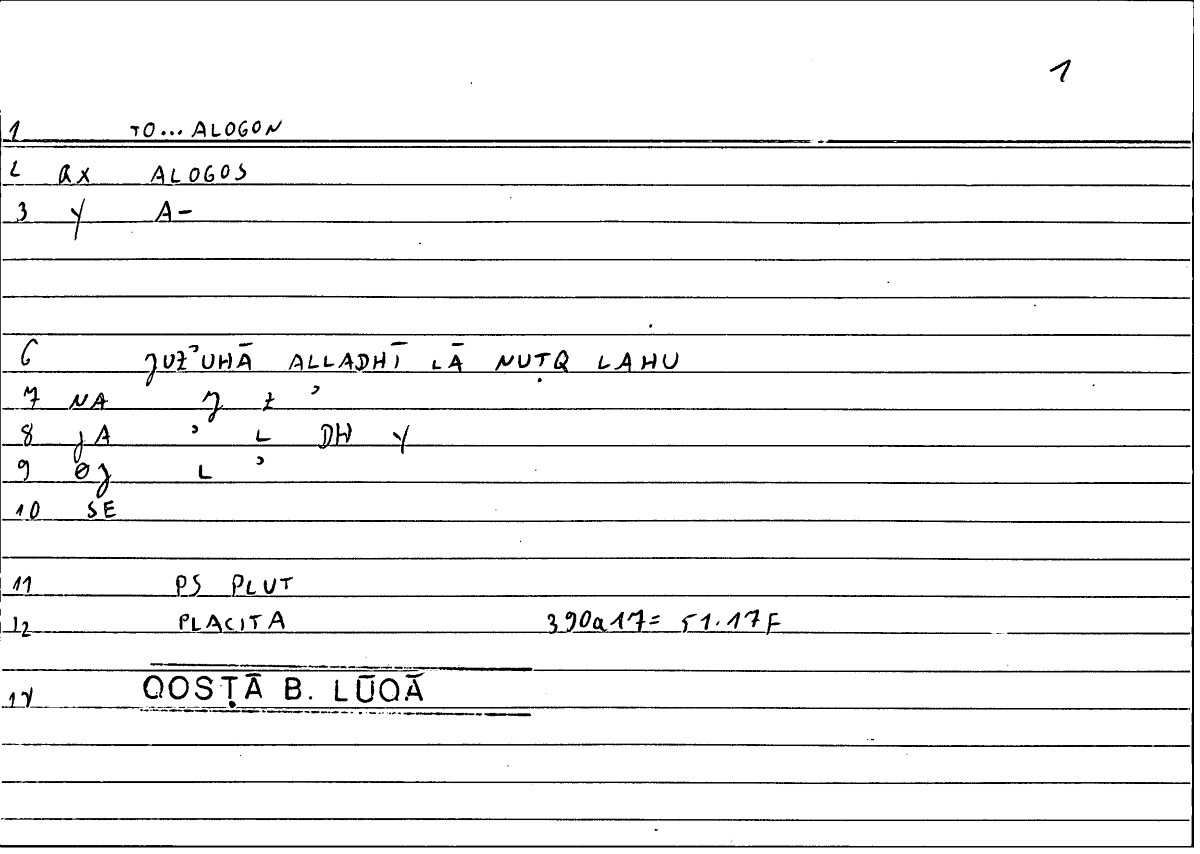 1
1 TO... ALOGON
2 QX ALOGOS
3 Y A-
6 JUZʾUHĀ ALLADHĪ LĀ NUṬQ LAHU
7 NA J Z ʾ
8 JA ʾ L DH Y
9 ØJ L ʾ
10 SE
11 PS PLUT
12 PLACITA 390a17= 51.17F
QOSṬĀ B. LŪQĀ